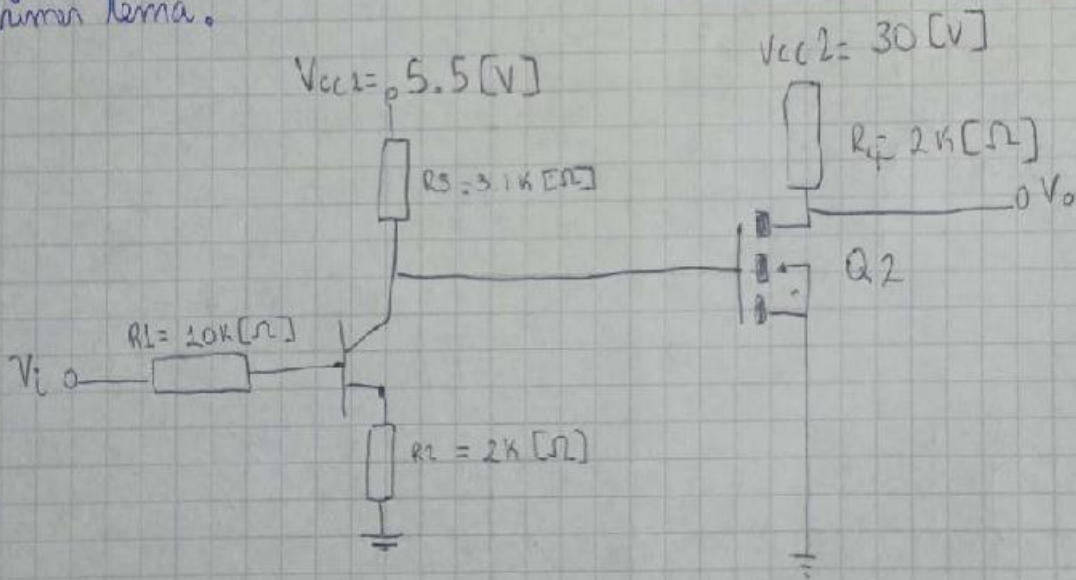 Vcc1= 5.5 [V]
Vcc2= 30 [V]
R3 = 3.1K [Ω]
R4= 2K [Ω]
Vo
Q2
R1= 10K [Ω]
Vi
R2 = 2K [Ω]